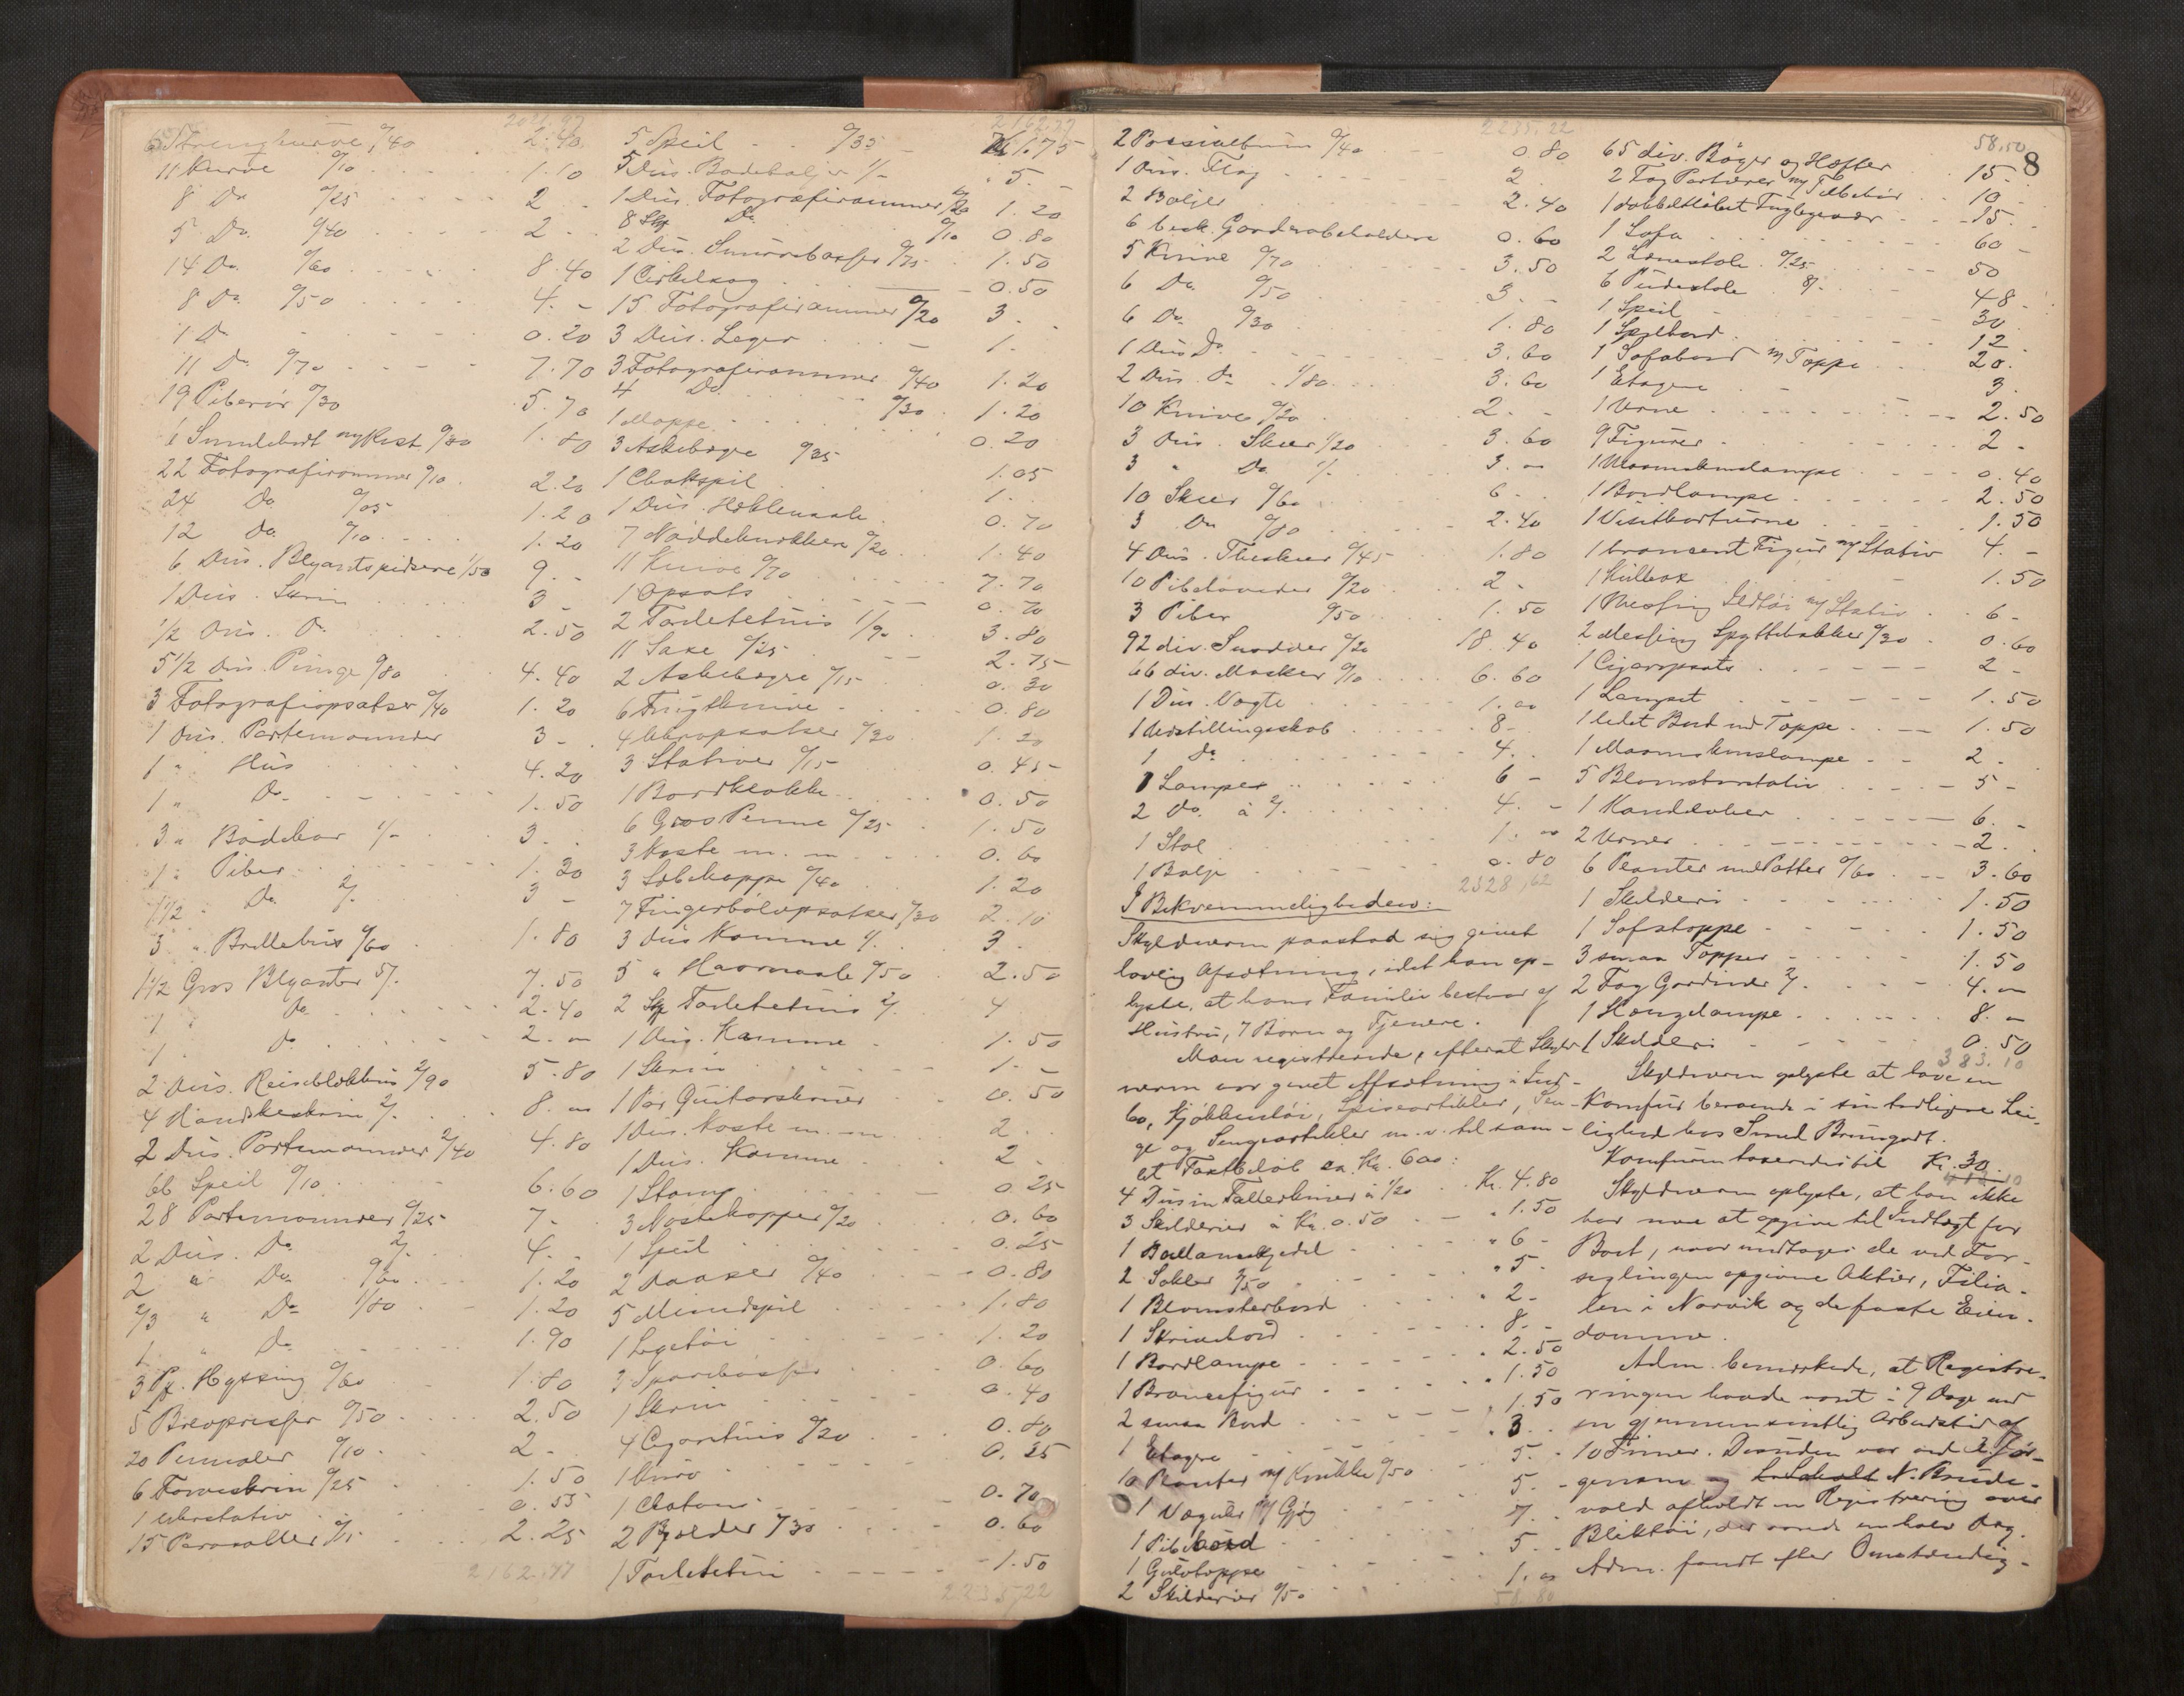 2021.97
6 Strengkurve, 0/40 2.40
11 Kurve 0/10 1.10
8 Do 0/25 2 -
5 Do. 0/40 2 -
14 Do. 0/60 8.40
8 Do 0/50 4. -
1 Do 0.20
11 Do 0/70 7.70
19 Piberør 0/30 5.70
6 0/30 1.80
22 Fotografirammer 0/10 2.20
24 Do 0/05 1.20
12 do. 0/10 1.20
6 Dus. Blyantspidsere 1/50 9. -
1 Dus. Skrin 3 -
1/2 Dus. Do 2.50
5 1/2 Dus. Punge 0/80 4.40
3 Fotografiopsatser 0/40 1.20
1 Dus. Portemonnaer 3 -
1 " Hus 4.20
1 " Do. 1.50
3 " Badekar 1/- 3.
1 " Piber 1.20
1 1/2 " Do. 2/ 3 -
3 " Brillehus 0/60 1.80
1 1/2 Gros Blyanter 5/. 7.50
1 " Do. 2.40
1 " Do. 2. -
2 Dus. Reiseblækhus 2/90 5.80
4 Handskeskrin 2/. 8. -
2 Dus. Portemonnaer 2/40 4.80
66 Speil 0/10 6.60
28 Portemonnaer 0/25 7 -
2 Dus. Do. 2/. 4. -
2 " Do. 0/60 1.20
2/3 " Do 1/80 1.20
1 " Do 1.90
3 Pk. Hyssing 0/60 1.80
5 Brevpresser 0/50 2.50
20 Pennaler 0/10 2 -
6 Farveskrin 0/25 1.50
1 Uhrstativ 0.55
15 Parasoller 0/15 2.25
2162,97
2162.97
5 Speil 0/35 1.75
5 Dus. Badebaljer 1/- 5. -
1 Dus. Fotografirammer 1/20 1.20
8 Stk Do. 0/10 0.80
2 Dus. 0/75 1.50
1 Cirkelsag 0.50
15 Fotografirammer 0/20 3. -
3 Dus. Leger 1. -
3 Fotografirammer 0/40 1.20
4 Do. 0/30 1.20
1 Mappe 0.20
3 Askebægre 0/35 1.05
1 Chakspil 1. -
1 Dus. Heklenaale 0.70
7 Nøddeknækkere 0/20 1.40
11 Knive 0/70 7.70
1 Opsats 0.70
2 Toiletetuis 1/90 3.80
11 Saxe 0/25 2.75
2 Askebægre 0/15 0.30
6 Frugtknive 0.80
4 Uhropsatser 0/30 1.20
3 Stativer 0/15 0.45
1 Bordklokke 0.50
6 Gros Penne 0/25 1.50
3 Koste m. m. 0.60
3 Sæbekoppe 0/40 1.20
7 Fingerbølopsatser 0/30 2.10
3 Dus Kamme 1/. 3.
5 " Haarnaale 0/50 2.50
2 Stk Toiletetuis 2/. 4
1 Dus. Kamme 1.50
1 Skrin 1. -
1 Par Guitarskruer 0.50
1 Dus. Koste m. m. 2 -
1 Dus. Kamme 2 -
1 Stamp 0.25
3 Kopper 0/20 0.60
1 Speil 0.25
2 Daaser 0/40 0.80
5 Mundspil 1.80
1 Legetøi 1.20
2 Sparebøsser 0.60
1 Skrin 0.40
4 Cigaretuis 0/20 0.80
1 0.35
1 0.70
2 Bjælder 0/30 0.60
1 Toiletetui 1.50
2235,22
2235.22
2 Poesialbum 0/40 0.80
1 Dus. Flag 2
2 Baljer 2.40
6 besk. Garderobeholdere 0.60
5 Knive 0/70 3.50
6 Do. 0/50 3. -
6 Do. 0/30 1.80
1 Dus Do. 3.60
2 Dus. Do 1/80 3.60
10 Knive 0/20 2. -
3 Dus. Skeer 1/20 3.60
3 " Do. 1/. 3. -
10 Skeer 0/60 6. -
3 Do 0/80 2.40
4 Dus. Theskeer 0/45 1.80
10 Pibehoveder 0/20 2 -
3 Piber 0/50 1.50
92 div. Snadder 0/20 18.40
66 div. Masker 0/10 6.60
1 Dus. Vogte 1. -
1 Udstillingsskab 8 -
1 do 4. -
1 Lampe 6 -
2 Do. à 2/. 4. -
1 Stol 1. -
1 Balje 0.80
2328,62
I Bekvemmeligheden:
Skyldneren paastod sig givet
lovlig Afsætning, idet han op-
lyste, at hans Familie bestaar af
Hustru, 7 Børn og Tjenere.
Man registrerede, efterat Skyld-
neren var givet Afsætning i Ind-
bo, Kjøkkentøi, Spiseartikler, Sen-
ge og Sengeartikler m. v. til sam-
let Taxtbeløb ca. Kr. 600:
4 Dusin Tallerkener à 1/20 Kr. 4.80
3 Skilderier à Kr. 0.50 " 1.50
1 Ballancekjedel " 6 -
2 Sokler 2/50 " 5 -
1 Blomsterbord " 2 -
1 Skrivebord " 8. -
1 Bordlampe " 2.50
1 Broncefigur " 1.50
2 smaa Bord " 1.50
1 Etagere " 3. -
10 Planter m/ Krukke 0/50 5. -
1 Væguhr m/ Gjøg 5. -
1 Pibebord 7. -
1 Gulvtæppe 5. -
2 Skilderier 0/50 1. -
58,80
58.50 8
65 div. Bøger og Hefter 15 -
2 Fag Portierer m/ Tilbehør 10 -
1 dobbeltløbet Fuglegevær 15 -
1 Sofa 60 -
2 Lænestole 0/25 50
6 Pudestole 8/. 48 -
1 Speil 30 -
1 Spillebord 12 -
1 Sofabord m/ Tæppe 20.
1 Etagere 3.
1 Urne 2.50
9 Figurer 2 -
1 Maaneskinslampe 0.40
1 Bordlampe 2.50
1 Visitkarturne 1.50
1 broncert Figur m/ Stativ 4. -
1 Kulbox 1.50
1 Messing Ildtøi m/ Stativ 6 -
2 Messing Spyttebakker 0/30 0.60
1 Cigaropsats 2 -
1 Lampet 1.50
1 lidet Bord med Tæppe 1.50
1 Maaneskinslampe 2 -
5 Blomsterstativ 5 -
1 Kandelaber 6. -
2 Urner 2. -
6 Planter med Potter 0/60 3.60
1 Skilderi 1.50
1 Sofatæppe 1.50
3 smaa Tæpper 1.50
2 Fag Gardiner 2/. 4. -
1 Hængelampe 8. -
1 Skilderi 0.50
383.10
Skyldneren oplyste at have en
Komfur beroende i sin tidligere Lei-
lighed hos Smed Brungodt.
Komfuren taxeredes til Kr. 30.
Skyldneren oplyste, at han ikke
har mere at opgive til Indtægt for
Boet, naar undtages de ved For-
seglingen opgivne Aktier, Filia-
len i Narvik og de faste Eien-
domme.
Adm. bemærkede, at Registre-
ringen havde varet i 9 Dage med
en gjennemsnitlig Arbeidstid af
10 Timer. Desuden var med 2 Gjør-
gensen og N. Brude-
vold afholdt en Registrering over
Bliktøi, der varede en halv Dag.
Adm. fandt efter Omstændig-